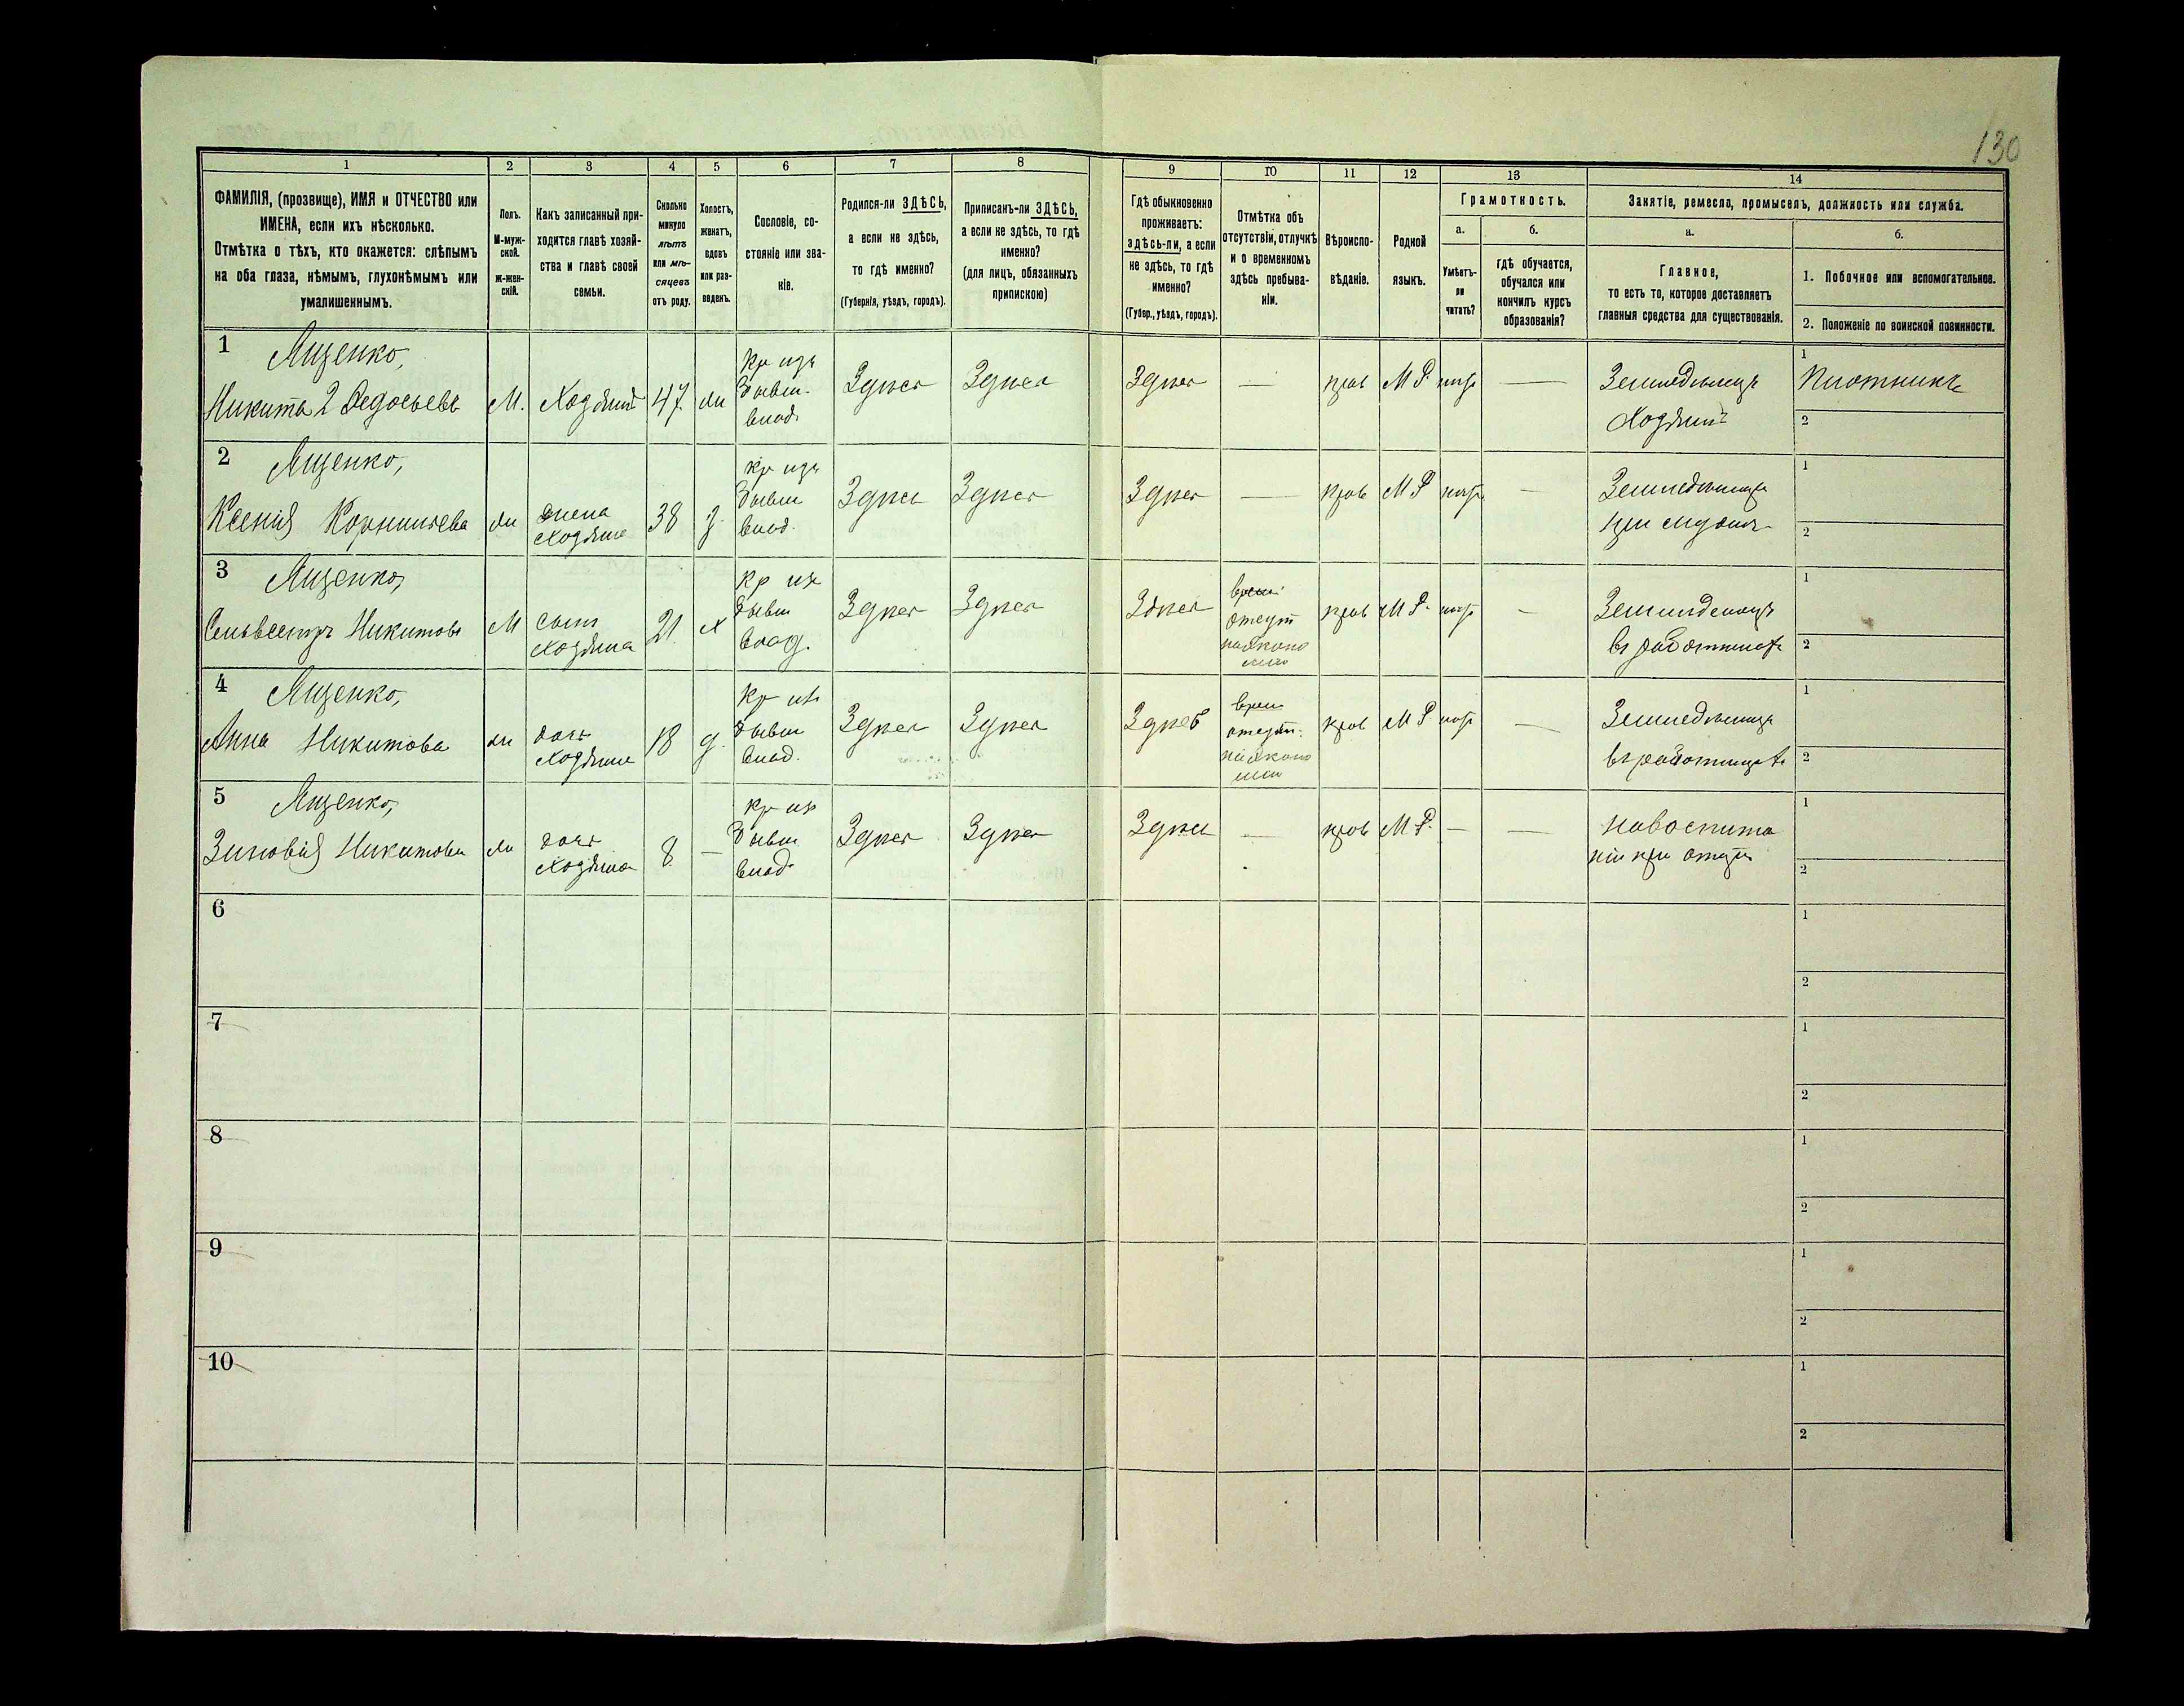 130
1 2 3 4 5 6 7 8 9 10 11 12 13 14
ФАМИЛІЯ, (прозвище), ИМЯ и ОТЧЕСТВО или
ИМЕНА, если ихъ нѣсколько.
Отмѣтка о тѣхъ, кто окажется: слѣпымъ
на оба глаза, нѣмымъ, глухонѣмымъ или
умалишеннымъ.
Полъ.
М-муж-
ской.
ж-жен-
скій.
Какъ записанный при-
ходится главѣ хозяй-
ства и главѣ своей
семьи.
Сколько
минуло
лѣтъ
или мѣ-
сяцевъ
отъ роду.
Холостъ,
женатъ,
вдовъ
или раз-
веденъ.
Сословіе, со-
стояніе или зва-
ніе.
Родился-ли ЗДѢСЬ,
а если не здѣсь,
то гдѣ именно?
(Губернія, уѣздъ, городъ).
Приписанъ-ли ЗДѢСЬ,
а если не здѣсь, то гдѣ
именно?
(для лицъ, обязанныхъ
припискою)
Гдѣ обыкновенно
проживаетъ:
здѣсь-ли, а если
не здѣсь, то гдѣ
именно?
(Губер., уѣздъ, городъ).
Отмѣтка объ
отсутствіи, отлучкѣ
и о временномъ
здѣсь пребыва-
ніи.
Вѣроиспо-
вѣданіе.
Родной
языкъ.
Грамотность.
а.
Умѣетъ-
ли
читать?
б.
гдѣ обучается,
обучался или
кончилъ курсъ
образованія?
Занятіе, ремесло, промыселъ, должность или служба.
а.
Главное,
то есть то, которое доставляетъ
главныя средства для существованія.
б.
1. Побочное или вспомогательное.
2. Положеніе по воинской повинности.
1 Ященко,
Никита 2 Федосьевъ
М. Хозяинъ 47
Кр изъ
бывш.
влад.
Здѣсь Здѣсь Здѣсь — прав М Р —
Земледѣлецъ
Хозяинъ
1 Плотникъ
2
2 Ященко,
Ксенія Корнильева
жена
хозяина
38
кр изъ
бывш
влад.
Здѣсь Здѣсь Здѣсь — прав М Р —
Земледѣлица
при мужѣ
1
2
3 Ященко,
Сельвестръ Никитовъ
М
сынъ
хозяина
21. х
кр из
бывш
влад.
Здѣсь Здѣсь Здѣсь
врем
отсут
прав М Р. —
Земледѣлецъ
въ работникахъ
1
2
4 Ященко,
Анна Никитова
дочь
хозяина
18 д.
кр из
бывш
влад.
Здѣсь Здѣсь Здѣсь
врем
отсут.
прав М Р —
Земледѣлица
въ работницахъ
1
2
5 Ященко,
Зиновія Никитова
дочь
хозяина
8 —
кр из
бывш
влад.
Здѣсь Здѣсь Здѣсь — прав М Р. — —
На воспита
ніи при отцѣ
1
2
6
1
2
7
1
2
8
1
2
9
1
2
10
1
2